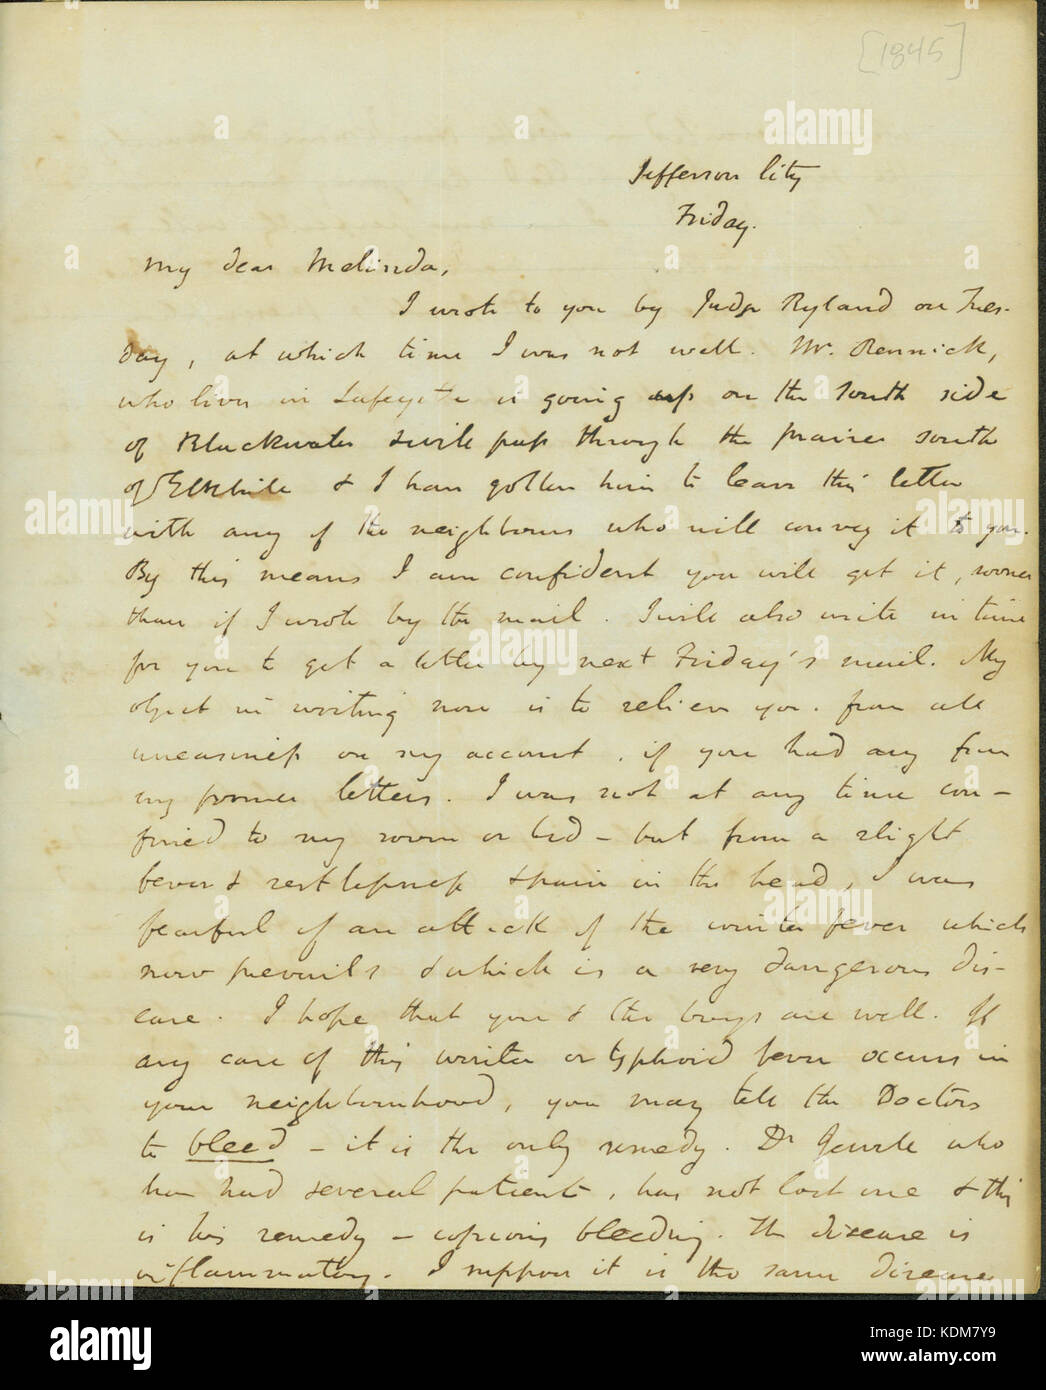 [1845]
Jefferson City
Friday.
My dear Melinda,
I wrote to you by Judge Ryland on Tues-
day, at which time I was not well. Mr. Rennick,
who lives in Lafayette is going up on the south side
of Blackwater & will pass through the prairies south
of & I have gotten him to leave this letter
with any of the neighbours who will convey it to you.
By this means I am confident you will get it, sooner
than if I wrote by the mail. I will also write in time
for you to get a letter by next Friday's mail. My
object in writing now is to relieve you from all
uneasiness on my account, if you had any from
my former letters. I was not at any time con-
fined to my room or bed - but from a slight
fever & restlessness & pain in the head, I was
fearful of an attack of the winter fever which
now prevails & which is a very dangerous dis-
ease. I hope that you & the boys are well. If
any case of this winter or typhoid fever occurs in
your neighbourhood, you may tell the Doctors
to bleed - it is the only remedy. Dr who
has had several patients, has not lost one & this
is his remedy - copious bleeding. The disease is
inflammatory. I suppose it is the same disease
alamy
a
alamy
Image ID: KDM7Y9
www.alamy.com